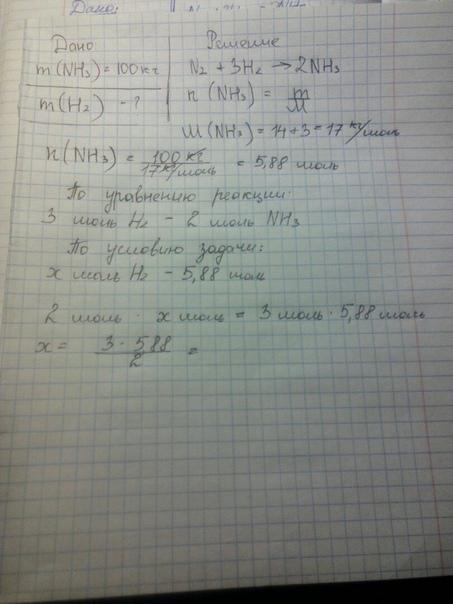 Дано:
Дано
Решение
m(NH₃) = 100 кг
N₂ + 3H₂ → 2NH₃
m(H₂) - ?
n(NH₃) = m/M
M(NH₃) = 14+3 = 17 кг/моль
n(NH₃) = 100 кг / 17 кг/моль = 5,88 моль
По уравнению реакции:
3 моль H₂ – 2 моль NH₃
По условию задачи:
x моль H₂ – 5,88 моль
2 моль · x моль = 3 моль · 5,88 моль
x = 3 · 588 / 2 =